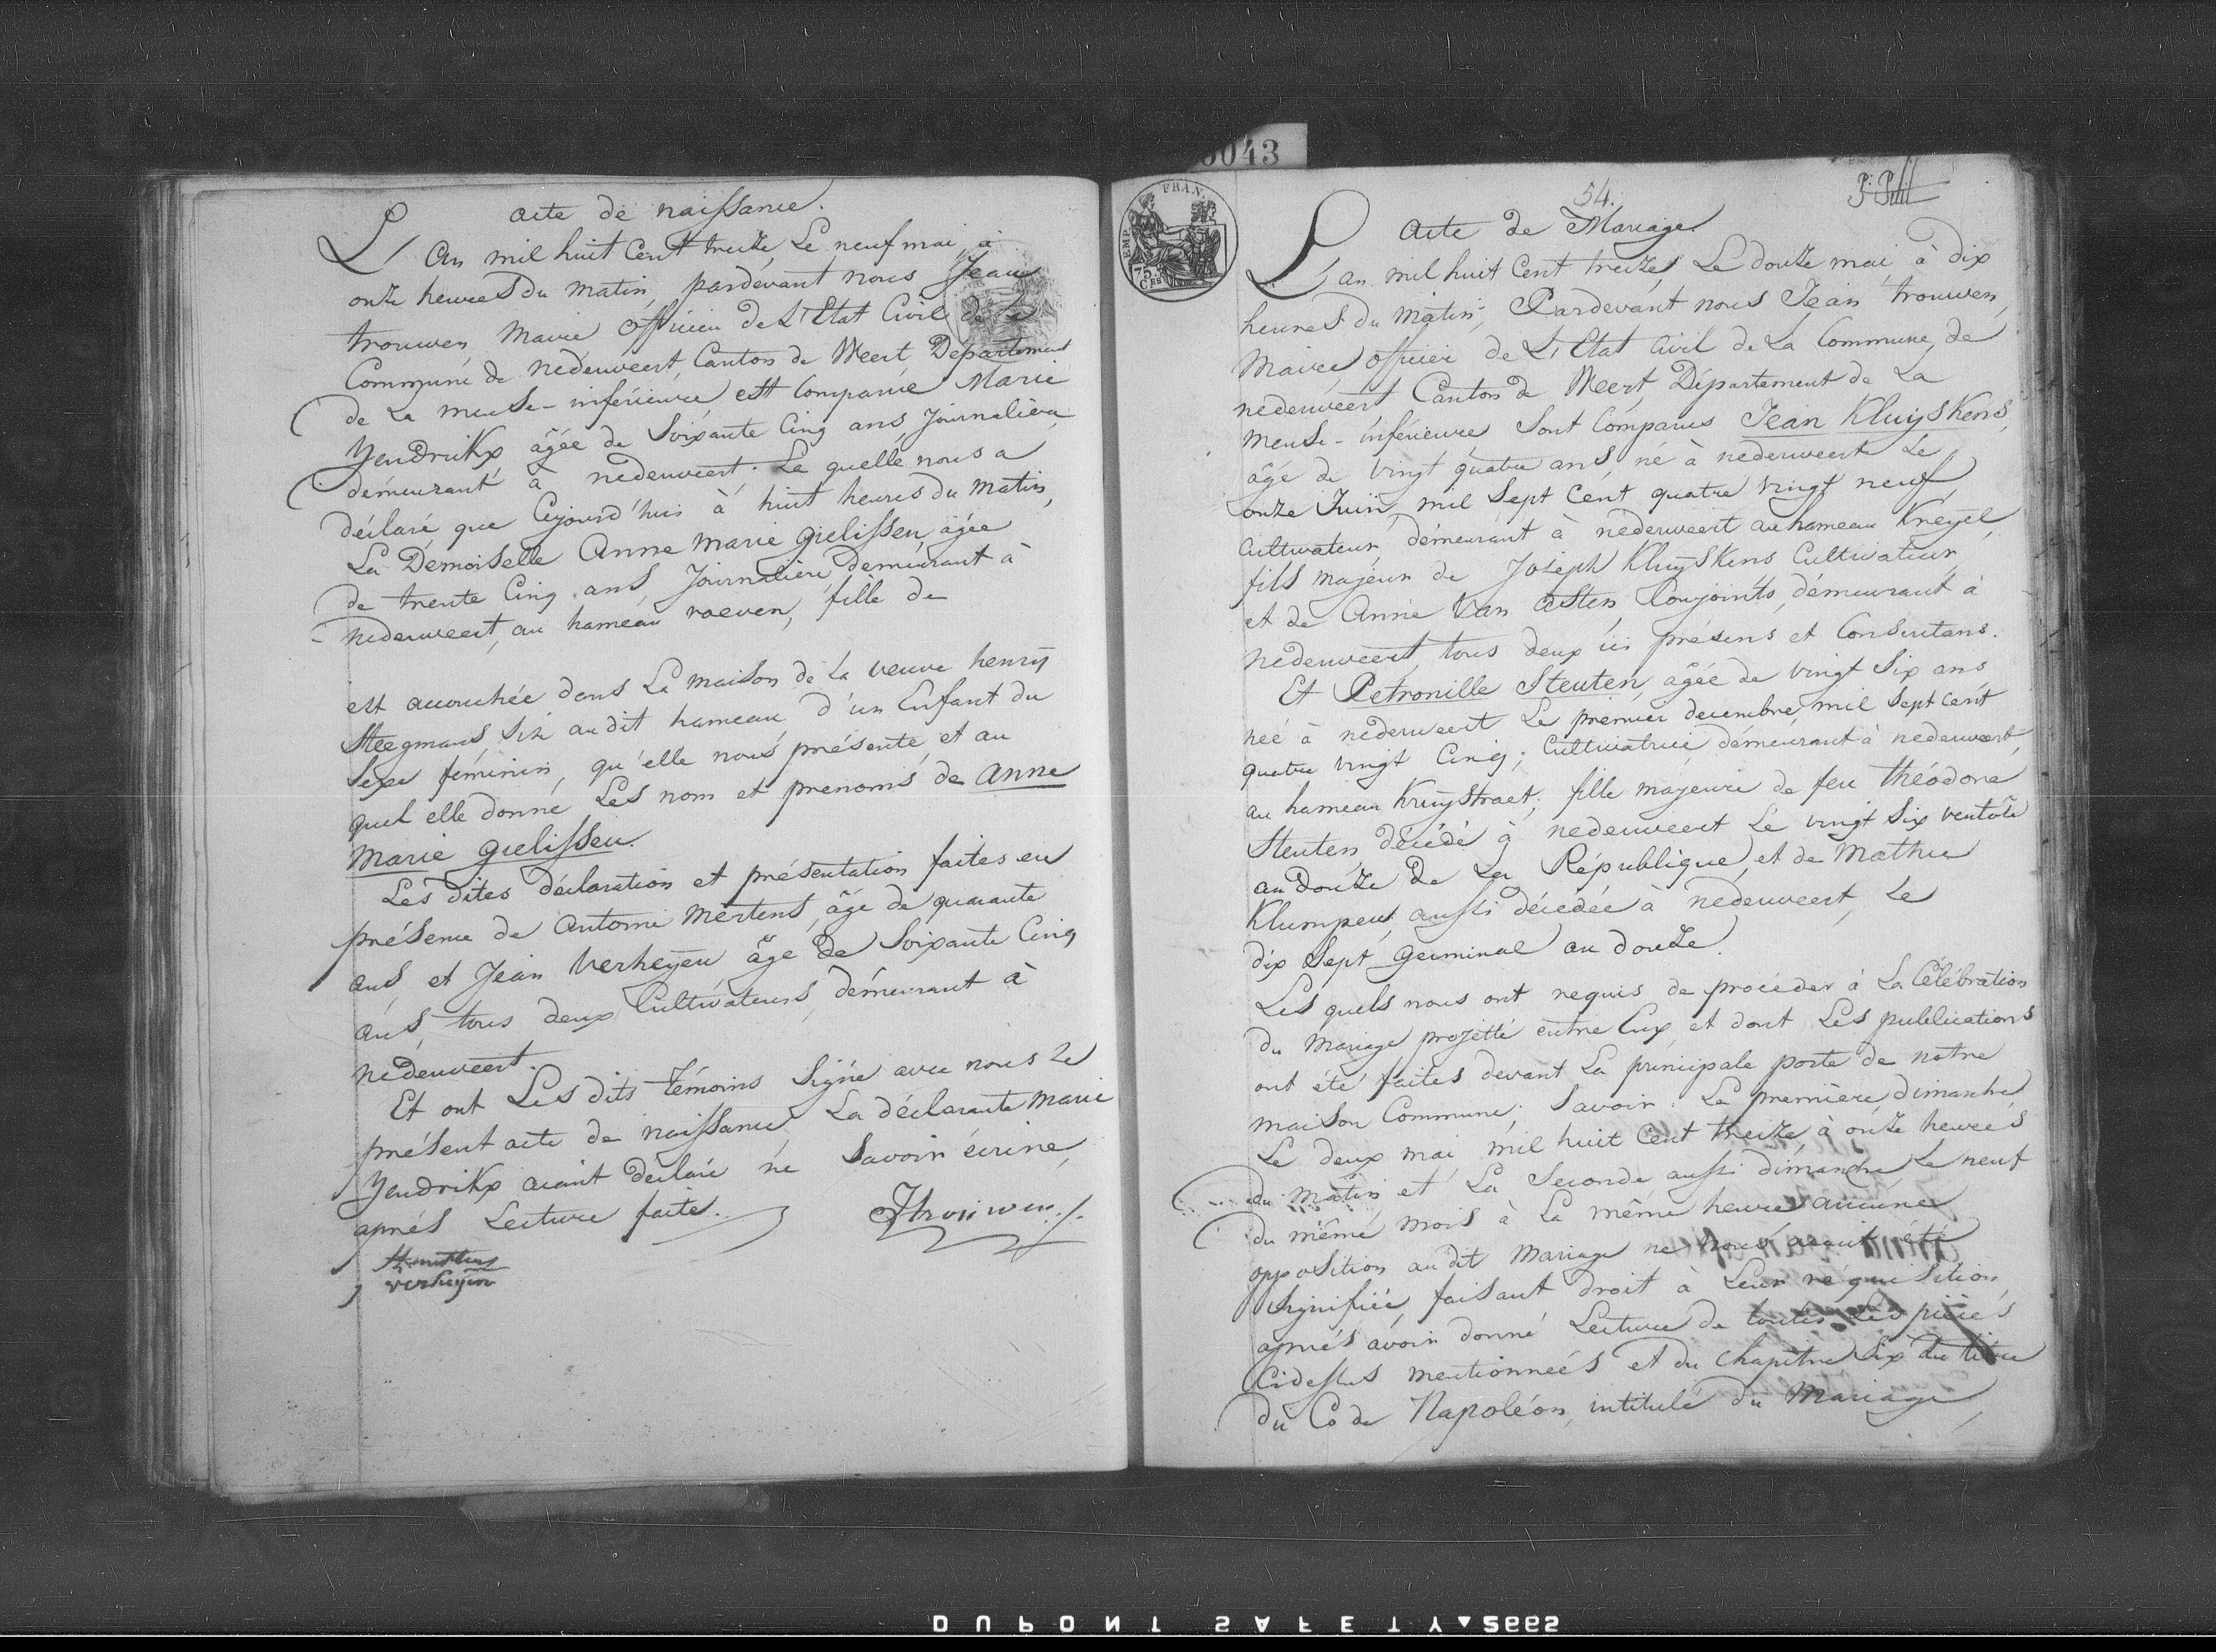 acte de naissance.
L'An mil huit Cent treize, Le neuf mai, à
onze heures du matin, pardevant nous Jean
trouwen, Maire officier de L'Etat Civil de la
Commune de nederweert, Canton de Weert Departement
de La meuse-inférieure est Comparue Marie
Hendrikx âgée de Soixante Cinq ans, Journalière
demeurant à nederweert. La quelle nous a
déclaré que Cejourd'hui à huit heures du matin,
La Demoiselle Anne marie gielissen, âgée
de trente Cinq ans, Journalière, demeurant à
nederweert, au hameau roeven, fille de
est accouchée dans La maison de La veuve henry
Steegmans, Sise audit hameau, d'un Enfant du
Sexe féminin, qu'elle nous présente, et au
quel elle donne Les nom et prenoms de Anne
Marie gielissen.
Les dites déclaration et présentation faites en
présence de Antoine Mertens, âgé de quarante
ans et Jean Verheÿen âgé de Soixante Cinq
ans, tous deux Cultivateurs, demeurant à
nederweert.
Et ont Les dits témoins Signé avec nous Le
présent acte de naissance, La déclarante Marie
Hendrikx aiant déclaré ne Savoir écrire,
après Lecture faite.
JTrouwen
Amertens
verheÿen
0043
EMP. FRAN.
75 Ces
54.
Acte de Mariage
L'an mil huit Cent treize, Le douze mai à dix
heures du matin, Pardevant nous Jean trouwen,
Maire officier de L'Etat Civil de La Commune de
nederweert, Canton de Weert, Département de La
meuse-inférieure Sont Comparus Jean Kluijskens,
âgé de vingt quatre ans, né à nederweert Le
onze Juin, mil Sept Cent quatre vingt neuf,
Cultivateur, demeurant à nederweert au hameau Kreijel,
fils majeur de Joseph Kluijskens Cultivateur,
et de Anne Van Asten, Conjoints, demeurant à
nederweert, tous deux ici présens et Consentans.
Et Petronille Steuten, âgée de vingt Six ans
née à nederweert Le premier decembre, mil Sept cent
quatre vingt Cinq; Cultivatrice, demeurant à nederweert
au hameau Kruijstraet; fille majeure de feu théodore
Steuten décédé à nederweert Le vingt Six ventôse
an Douze de La République, et de Mathie
Klumpen, aussi décédée à nederweert, Le
dix Sept germinal an douze.
Les quels nous ont requis de procéder à La Célébration
du Mariage projetté entre Eux, et dont Les publications
ont été faites devant La principale porte de notre
maison Commune, Savoir: La première, dimanche
Le deux mai mil huit Cent treize, à onze heures
du matin, et La Seconde aussi dimanche Le neuf
du même mois à La même heure aucune
opposition au dit Mariage ne nous aiant été
Signifiée, faisant droit à Leur réquisition,
après avoir donné Lecture de toutes Les pièces
Cidessus mentionnées et du Chapitre Six du titre
du Code Napoléon, intitulé du Mariage,
DUPONT SAFETY